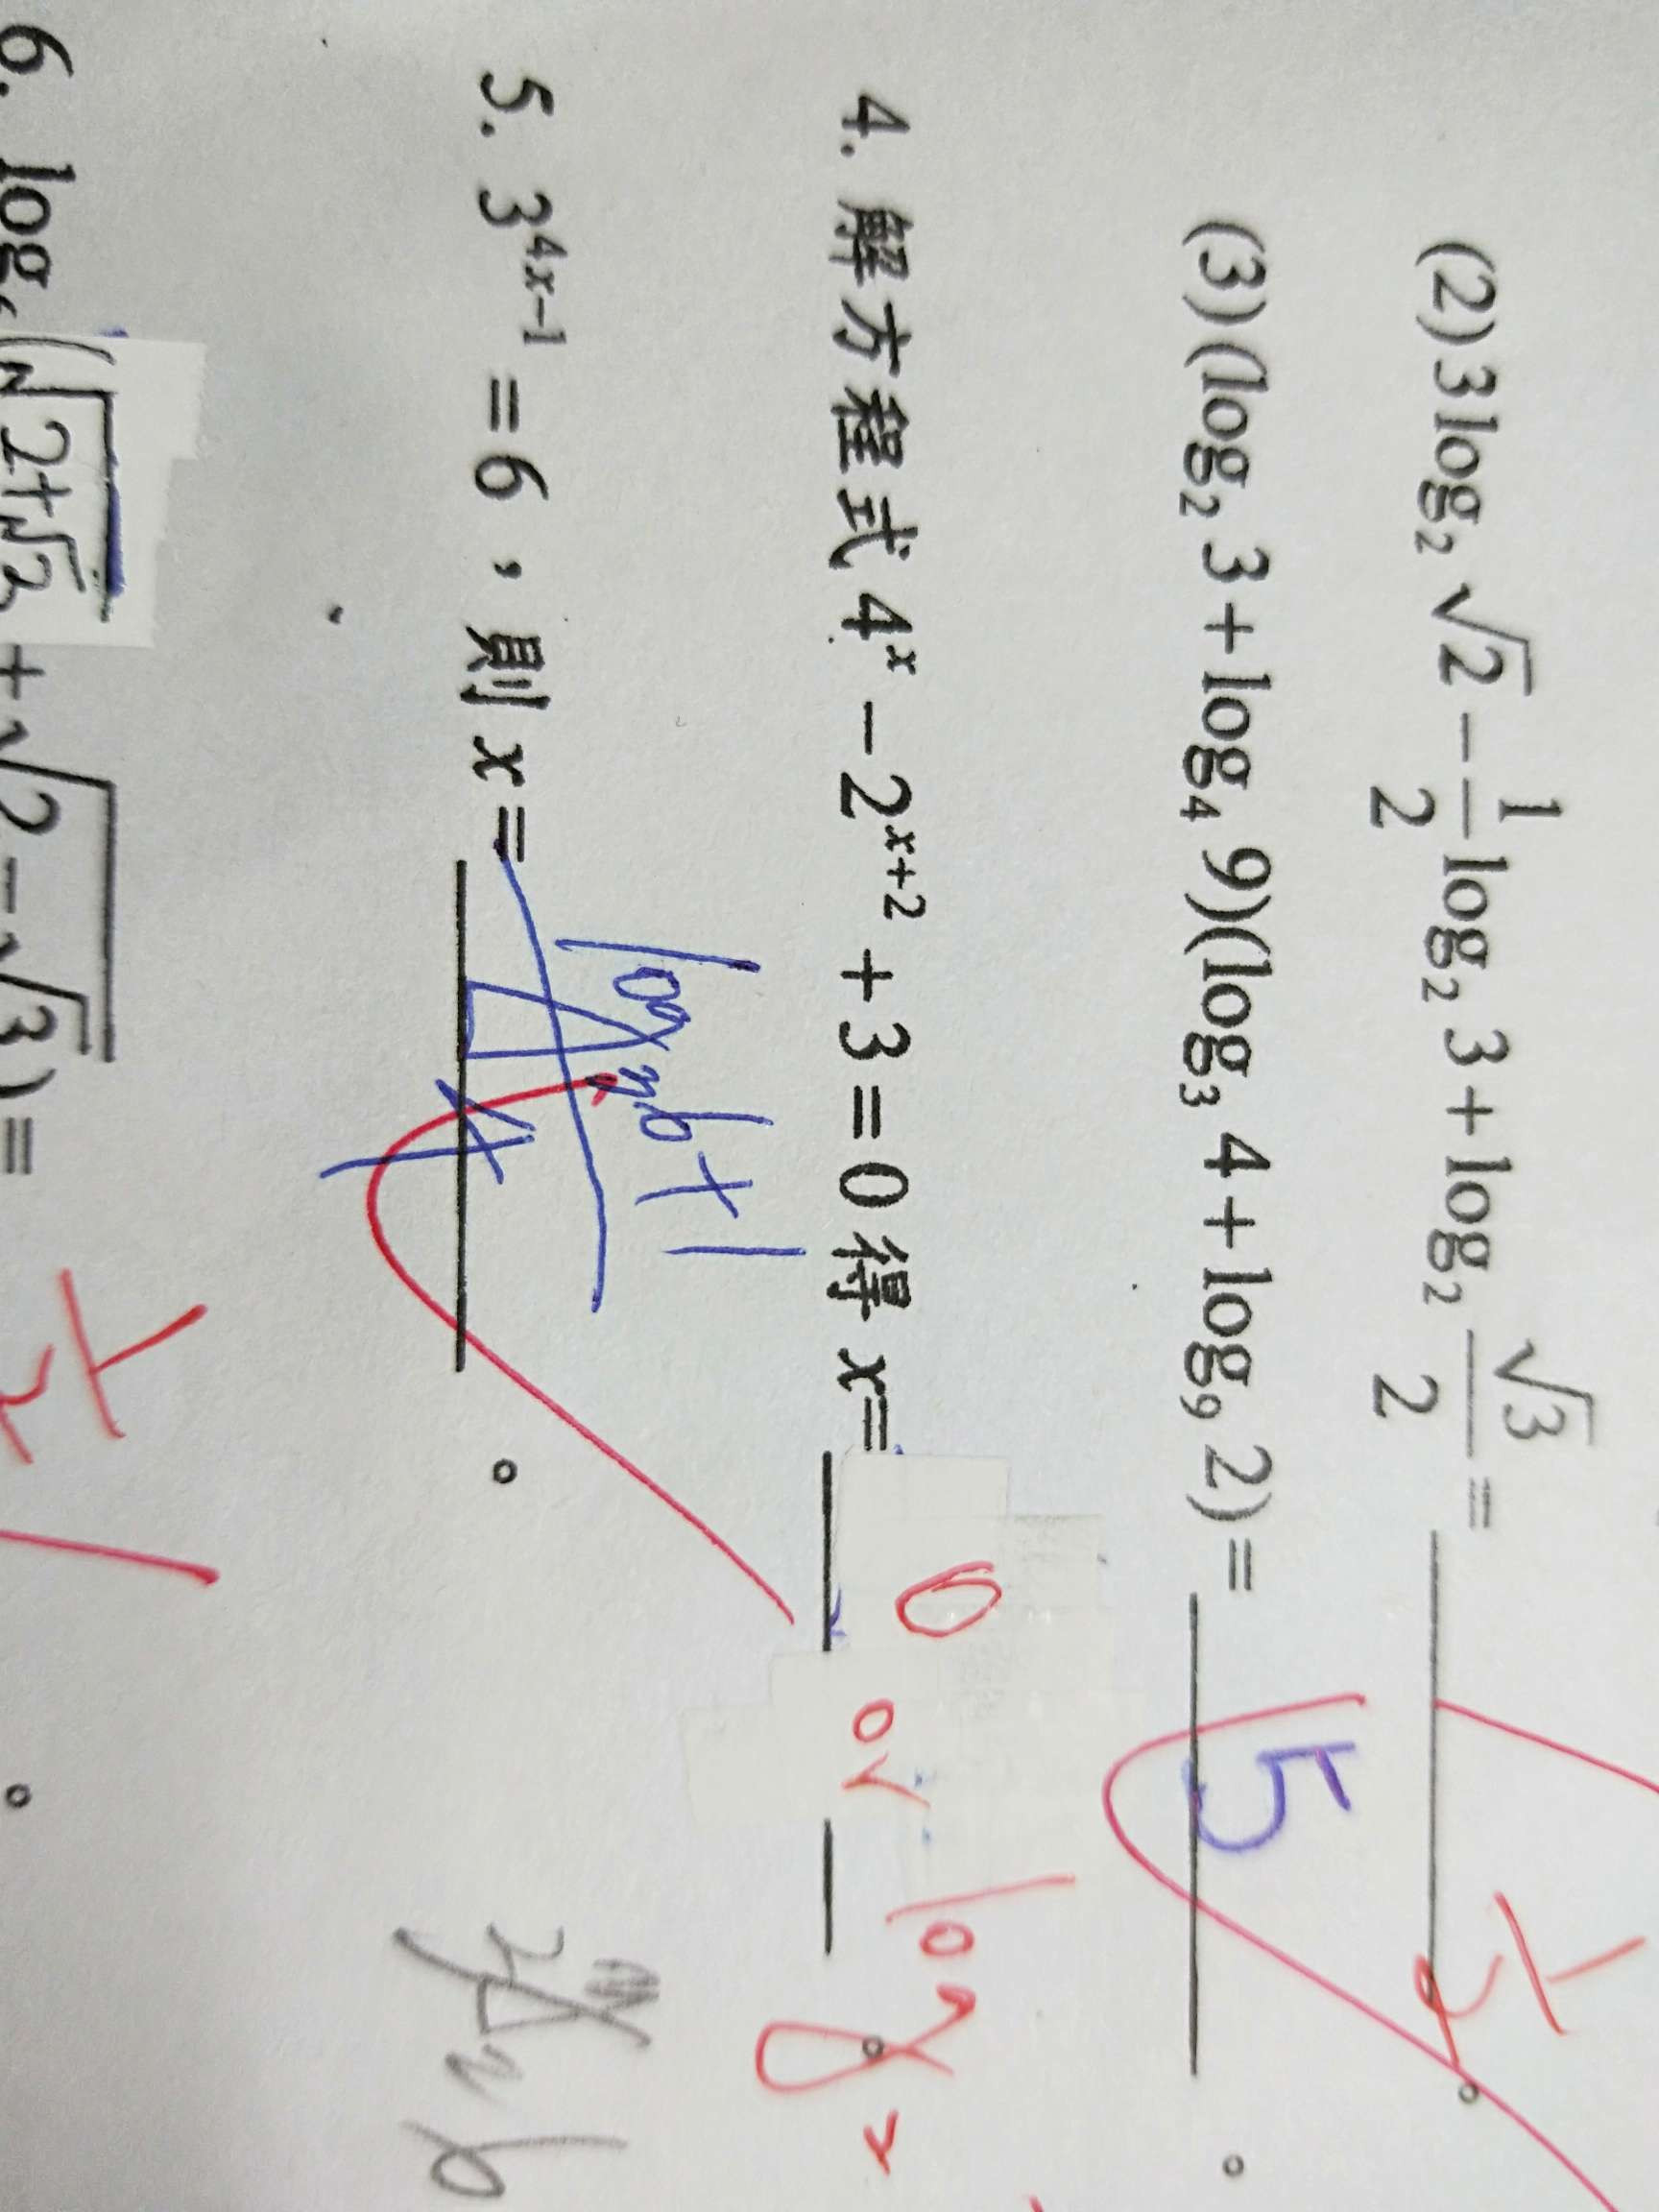 (2) 3log₂ √2 − 1/2 log₂ 3 + log₂ √3/2 = ______ 。 1/2
(3) (log₂ 3 + log₄ 9)(log₃ 4 + log₉ 2) = 5 。
4. 解方程式 4ˣ − 2ˣ⁺² + 3 = 0 得 x = 0 or log₂ 。
5. 3⁴ˣ⁻¹ = 6，則 x = (log₃6+1)/4 。
6. log (√(2+√3) + √(2−√3)) = 1/2 。